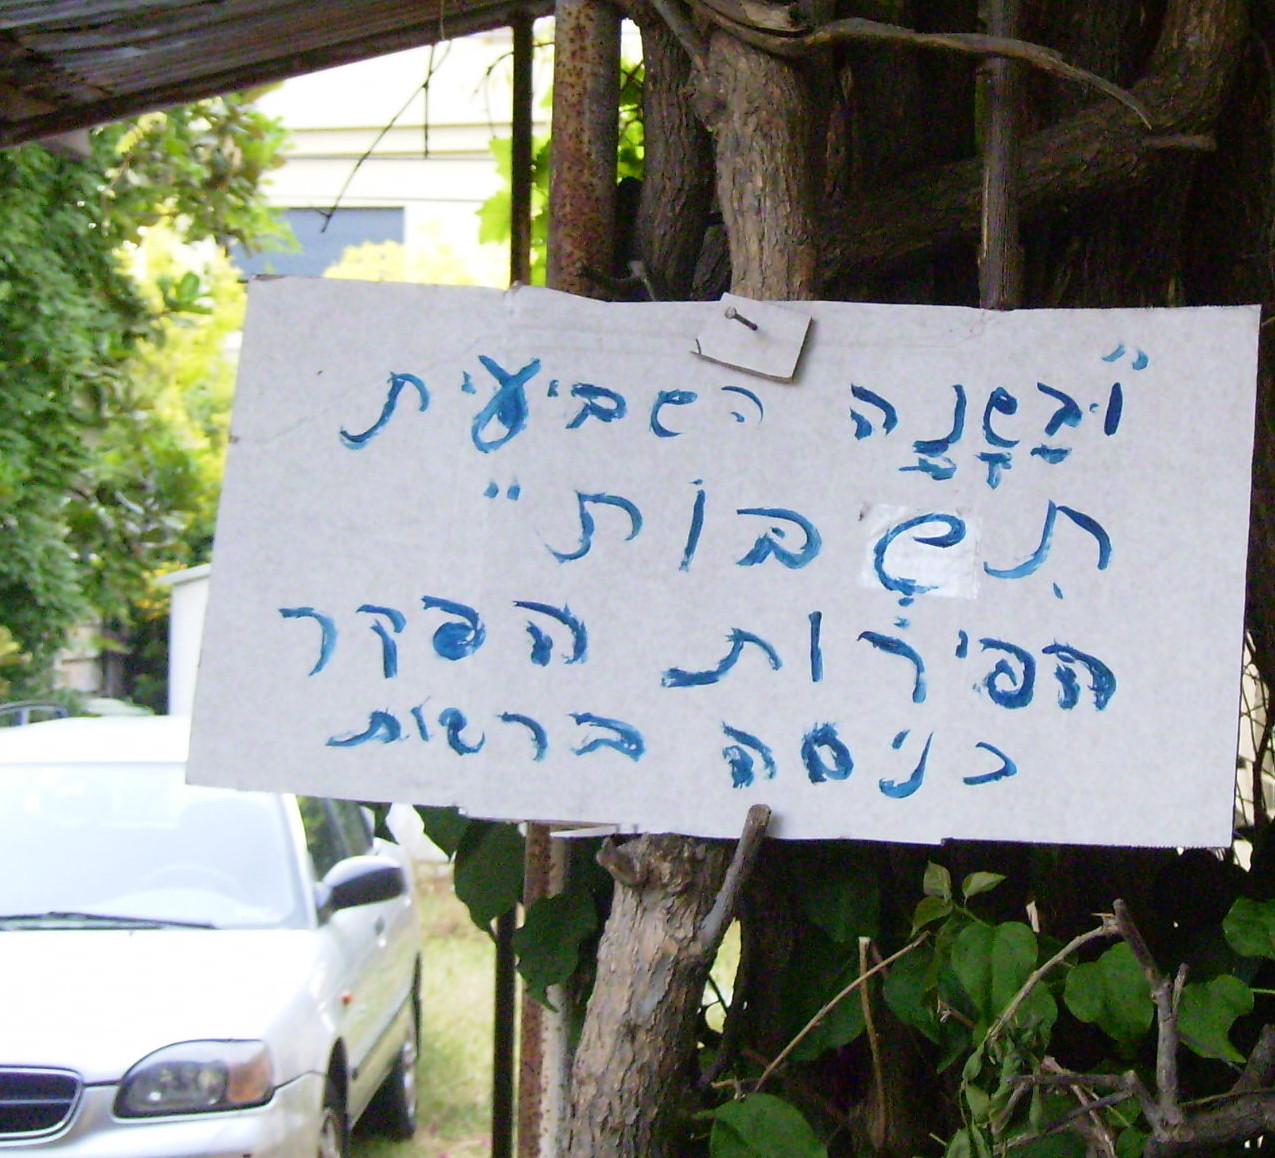 "וּבַשָּׁנָה השביעית
תִשבּוֹת"
הפירות הפקר
כניסה ברשות